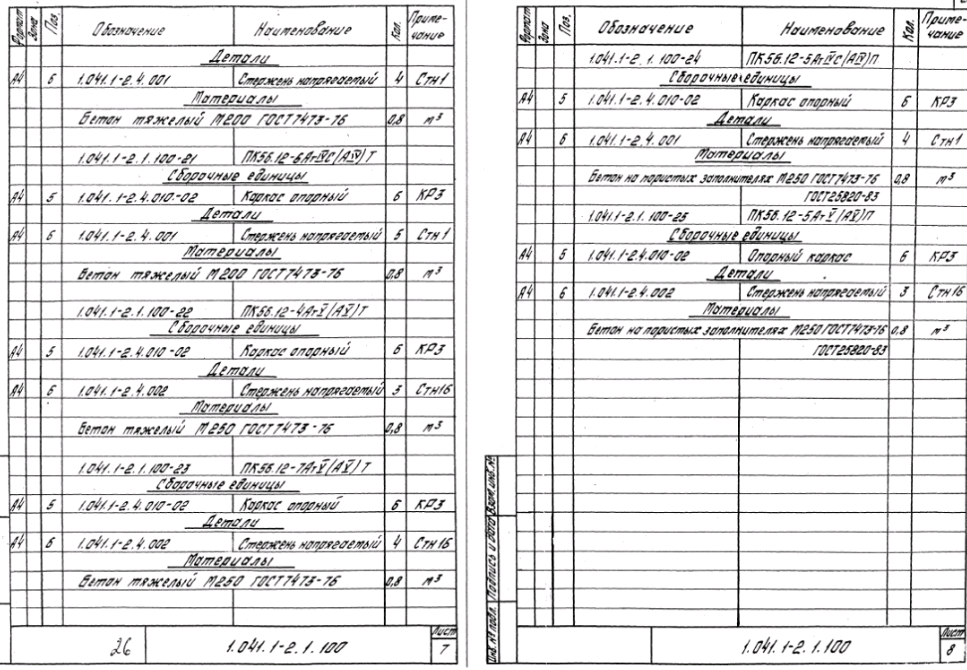 Формат Зона Поз. Обозначение Наименование Кол. Примечание
Детали
А4 6 1.041.1-2.4.001 Стержень напрягаемый 4 Стн1
Материалы
Бетон тяжелый М200 ГОСТ 7473-76 0,8 м³
1.041.1-2.1.100-21 ПК56.12-6АтIVС(АIV)Т
Сборочные единицы
А4 5 1.041.1-2.4.010-02 Каркас опорный 6 КР3
Детали
А4 6 1.041.1-2.4.001 Стержень напрягаемый 5 Стн1
Материалы
Бетон тяжелый М200 ГОСТ 7473-76 0,8 м³
1.041.1-2.1.100-22 ПК56.12-4АтV(АV)Т
Сборочные единицы
А4 5 1.041.1-2.4.010-02 Каркас опорный 6 КР3
Детали
А4 6 1.041.1-2.4.002 Стержень напрягаемый 3 Стн16
Материалы
Бетон тяжелый М250 ГОСТ 7473-76 0,8 м³
1.041.1-2.1.100-23 ПК56.12-7АтV(АV)Т
Сборочные единицы
А4 5 1.041.1-2.4.010-02 Каркас опорный 6 КР3
Детали
А4 6 1.041.1-2.4.002 Стержень напрягаемый 4 Стн16
Материалы
Бетон тяжелый М250 ГОСТ 7473-76 0,8 м³
26 1.041.1-2.1.100 Лист 7
Формат Зона Поз. Обозначение Наименование Кол. Примечание
1.041.1-2.1.100-24 ПК56.12-5АтIVС(АIV)П
Сборочные единицы
А4 5 1.041.1-2.4.010-02 Каркас опорный 6 КР3
Детали
А4 6 1.041.1-2.4.001 Стержень напрягаемый 4 Стн1
Материалы
Бетон на пористых заполнителях М250 ГОСТ7473-76 0,8 м³
ГОСТ25820-83
1.041.1-2.1.100-25 ПК56.12-5АтV(АV)П
Сборочные единицы
А4 5 1.041.1-2.4.010-02 Опорный каркас 6 КР3
Детали
А4 6 1.041.1-2.4.002 Стержень напрягаемый 3 Стн16
Материалы
Бетон на пористых заполнителях М250 ГОСТ7473-76 0,8 м³
ГОСТ25820-83
Инв. № подл. Подпись и дата Взам. инв. №
1.041.1-2.1.100 Лист 8